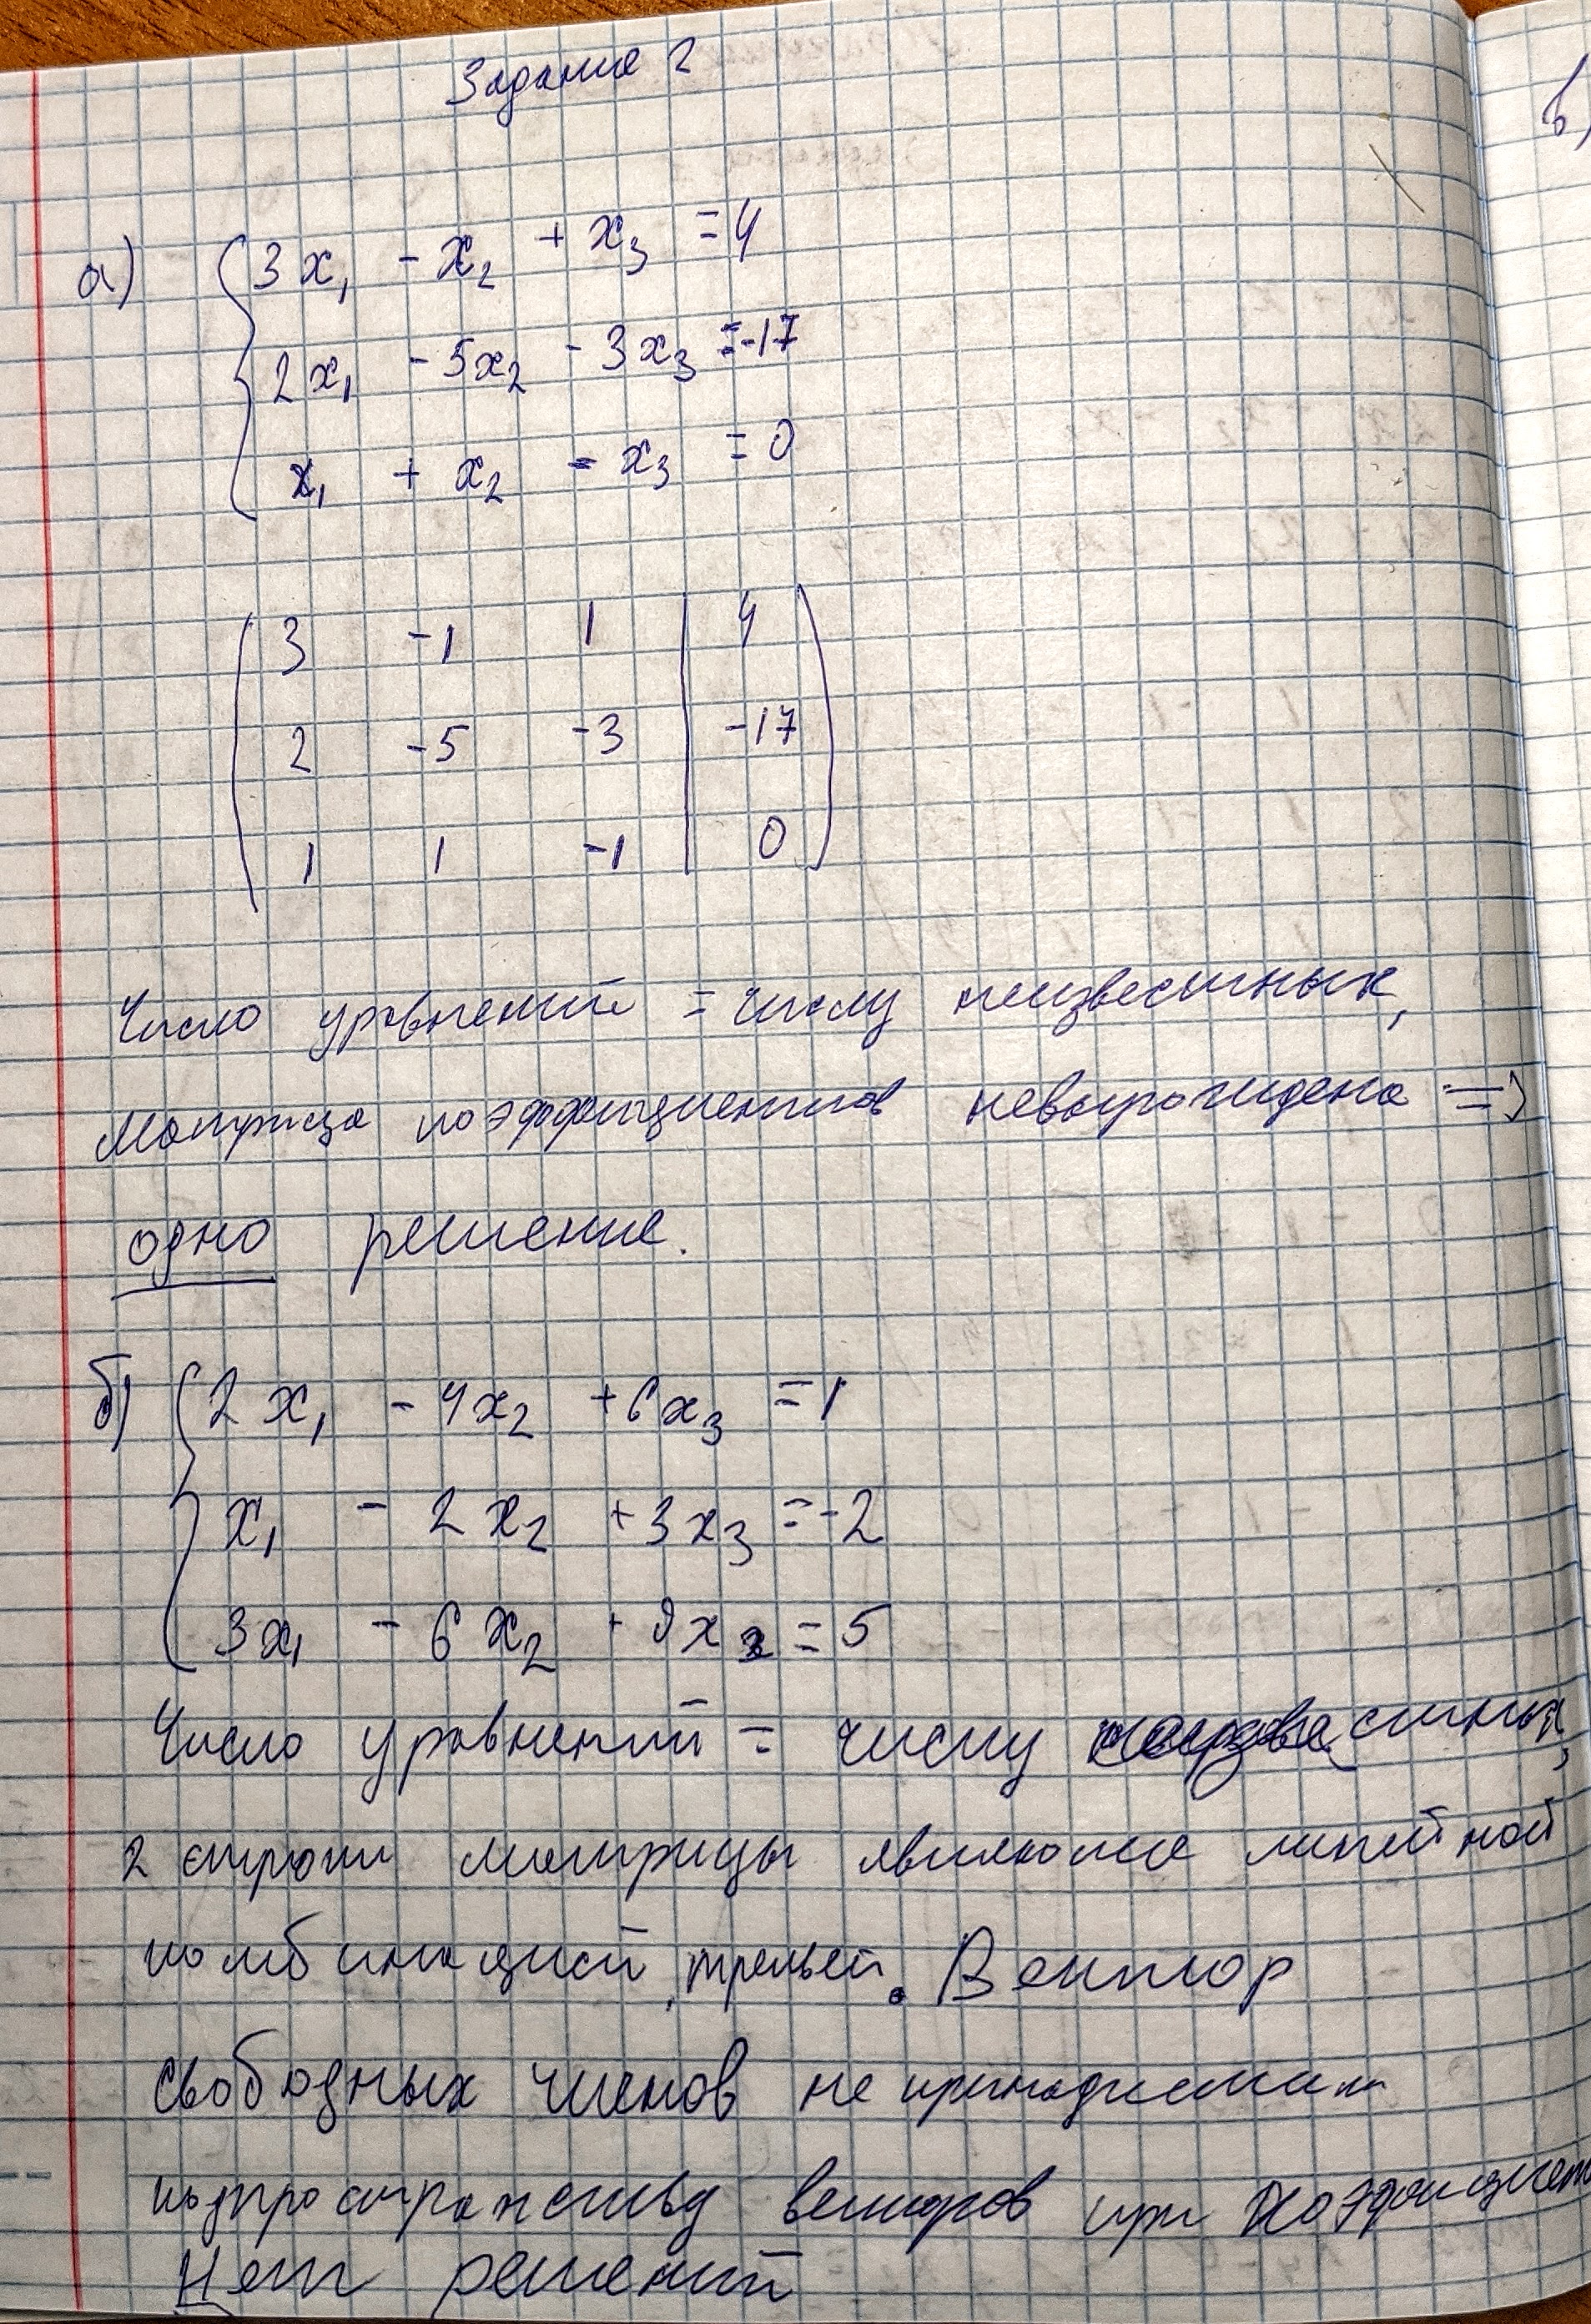 Задание 2
в)
а) 3x₁ - x₂ + x₃ = 4
2x₁ - 5x₂ - 3x₃ = -17
x₁ + x₂ - x₃ = 0
3 -1 1 | 4
2 -5 -3 | -17
1 1 -1 | 0
Число уравнений = числу неизвестных,
Матрица коэффициентов невырождена =>
одно решение.
б) 2x₁ - 4x₂ + 6x₃ = 1
x₁ - 2x₂ + 3x₃ = -2
3x₁ - 6x₂ + 9x₃ = 5
Число уравнений = числу неизвестных,
2 строки матрицы являются линейной
комбинацией третьей. Вектор
свободных членов не принадлежит
подпространству векторов при коэффициент
Нет решений